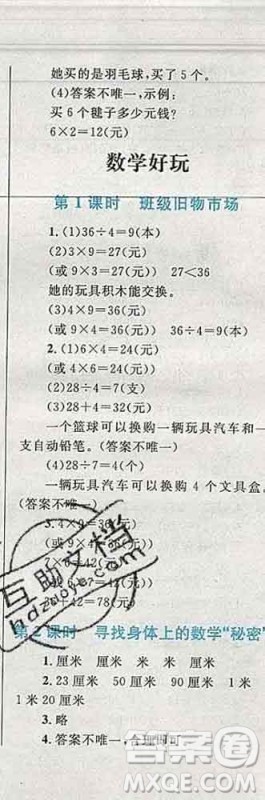 她买的是羽毛球，买了 5 个。
(4)答案不唯一，示例：
买 6 个毽子多少元钱？
6×2=12(元)
数学好玩
第 1 课时 班级旧物市场
1. (1)36÷4=9(本)
(2)3×9=27(元)
(或 9×3=27(元) 27<36
她的玩具积木能交换。
(3)4×9=36(元)
(或 9×4=36(元) 36÷4=9(本)
2. (1)6×4=24(元)
(或 4×6=24(元)
(2)28+4=32(元)
一个篮球可以换购一辆玩具汽车和一
支自动铅笔。(答案不唯一)
(4)28÷7=4(个)
一辆玩具汽车可以换购 4 个文具盒。
(答案不唯一)
3. 4×9=36(元)
(或 9×4=36(元)
=42(元)
7=42(元)
+42=78(元)
互助文档
hdzuoye.com
第 2 课时 寻找身体上的数学“秘密”
1. 厘米 厘米 米 米 厘米
2. 23 厘米 50 厘米 90 厘米 1 米
1 米 20 厘米
3. 略
4. 答案不唯一，合理即可
MXQE.COM